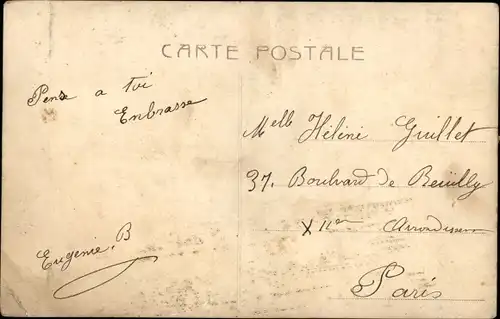 CARTE POSTALE
Pense a toi
Enbrasse
Eugenie. B
Melle Hélène Guillet
37. Boulvard de Reuilly
XIIer Arrondissem
Paris